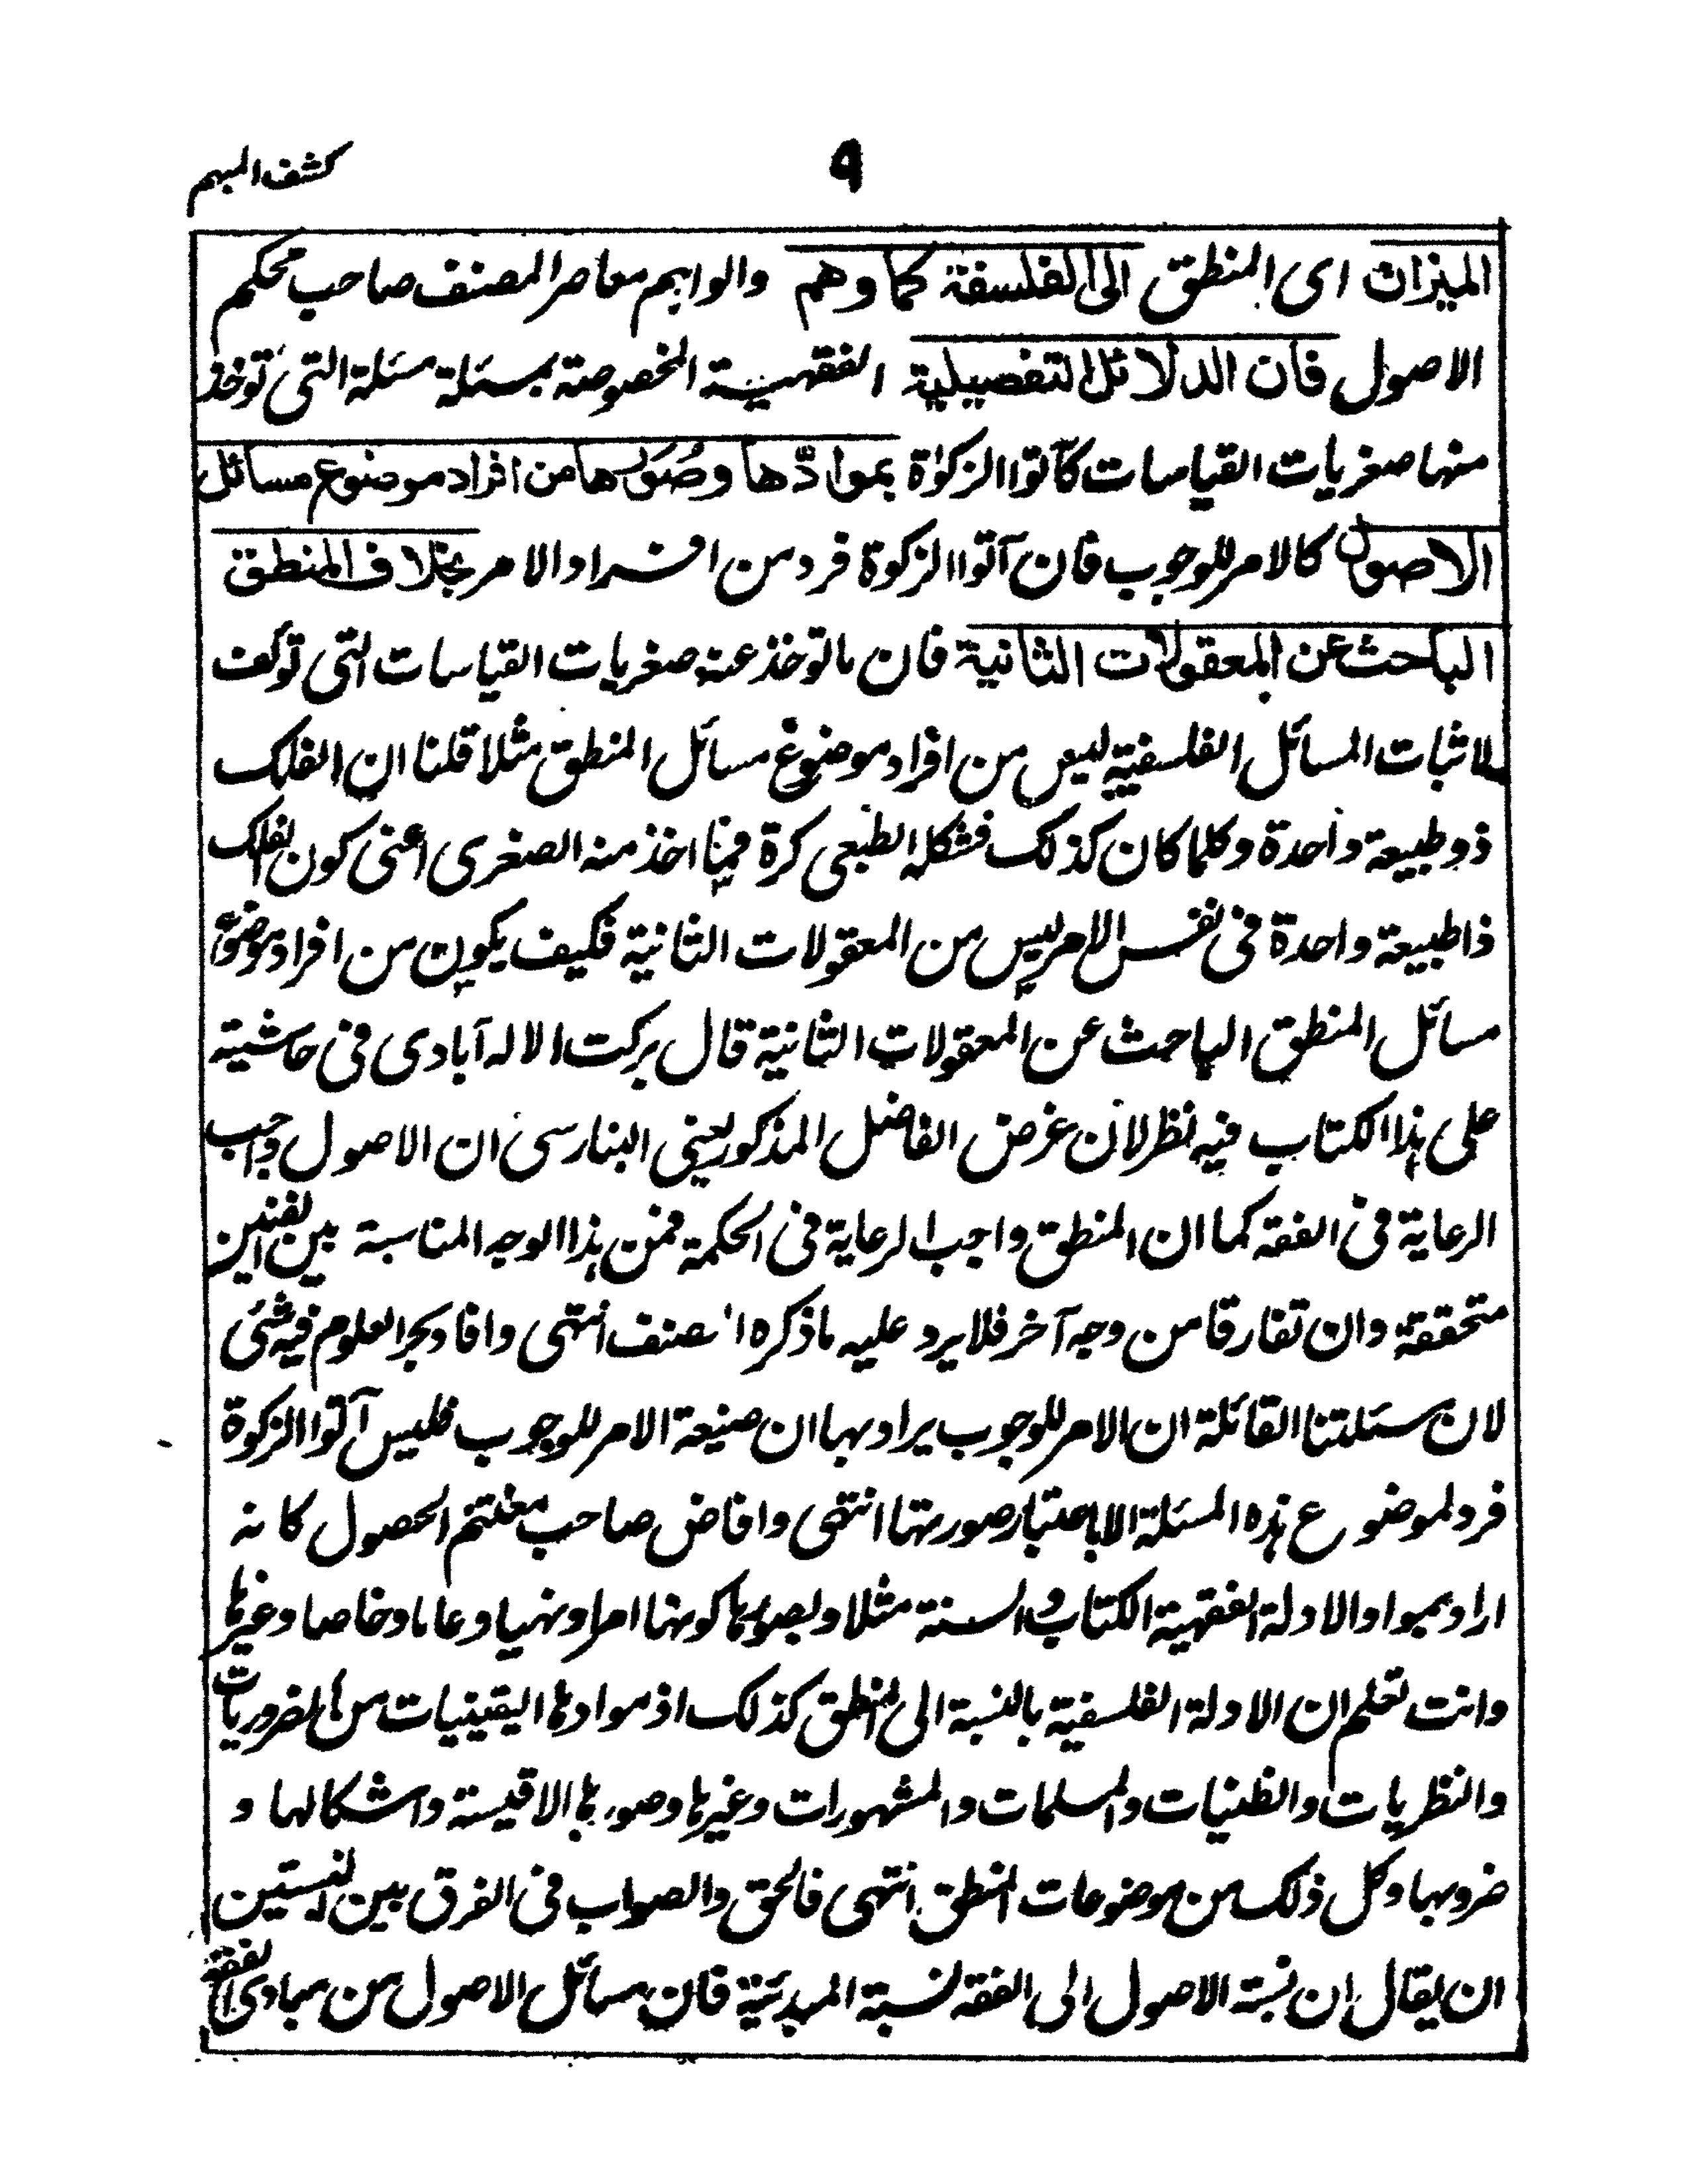 كشف المبهم
٩
الميزان اى المنطق الى الفلسفة كما وهم والواهم معاصر المصنف صاحب محكم
الاصول فان الدلائل التفصيلية الفقهية المخصوصة بمسئلة مسئلة التى توخذ
منها صغريات القياسات كآتوا الزكوٰة بموادّها وصُوَرها من افراد موضوع مسائل
الاصول كالامر للوجوب فان آتوا الزكوة فرد من افراد الامر بخلاف المنطق
الباحث عن المعقولات الثانية فان ما توخذ عنه صغريات القياسات التى تولف
لاثبات المسائل الفلسفية ليس من افراد موضوع مسائل المنطق مثلا قلنا ان الفلك
ذو طبيعة واحدة وكلما كان كذلك فشكله الطبعى كرة فهنا اخذ منه الصغرى اعنى كون الفلك
ذا طبيعة واحدة فى نفس الامر ليس من المعقولات الثانية فكيف يكون من افراد موضوع
مسائل المنطق الباحث عن المعقولات الثانية قال بركت الاله آبادى فى حاشيته
على هذا الكتاب فيه نظر لان غرض الفاضل المذكور يعنى البنارسى ان الاصول واجب
الرعاية فى الفقه كما ان المنطق واجب الرعاية فى الحكمة فمن هذا الوجه المناسبة بين الفنين
متحققة وان تفارقا من وجه آخر فلا يرد عليه ما ذكره المصنف انتهى وافاد بحر العلوم فيه شئ
لان مسئلتنا القائلة ان الامر للوجوب يراد بها ان صيغة الامر للوجوب فليس آتوا الزكوة
فرد لموضوع هذه المسئلة الا باعتبار صورتها انتهى وافاض صاحب مغتنم الحصول كانه
اراد بمواد الادلة الفقهية الكتاب والسنة مثلا وبصورها كونها امرا ونهيا وعاما وخاصا وغيرها
وانت تعلم ان الادلة الفلسفية بالنسبة الى المنطق كذلك اذ موادها اليقينيات من الضروريات
والنظريات والظنيات والمسلمات والمشهورات وغيرها وصورها الاقيسة واشكالها و
ضروبها وكل ذلك من موضوعات المنطق انتهى فالحق والصواب فى الفرق بين النسبتين
ان يقال ان نسبة الاصول الى الفقه نسبة المبدئية فان مسائل الاصول من مبادى الفقه